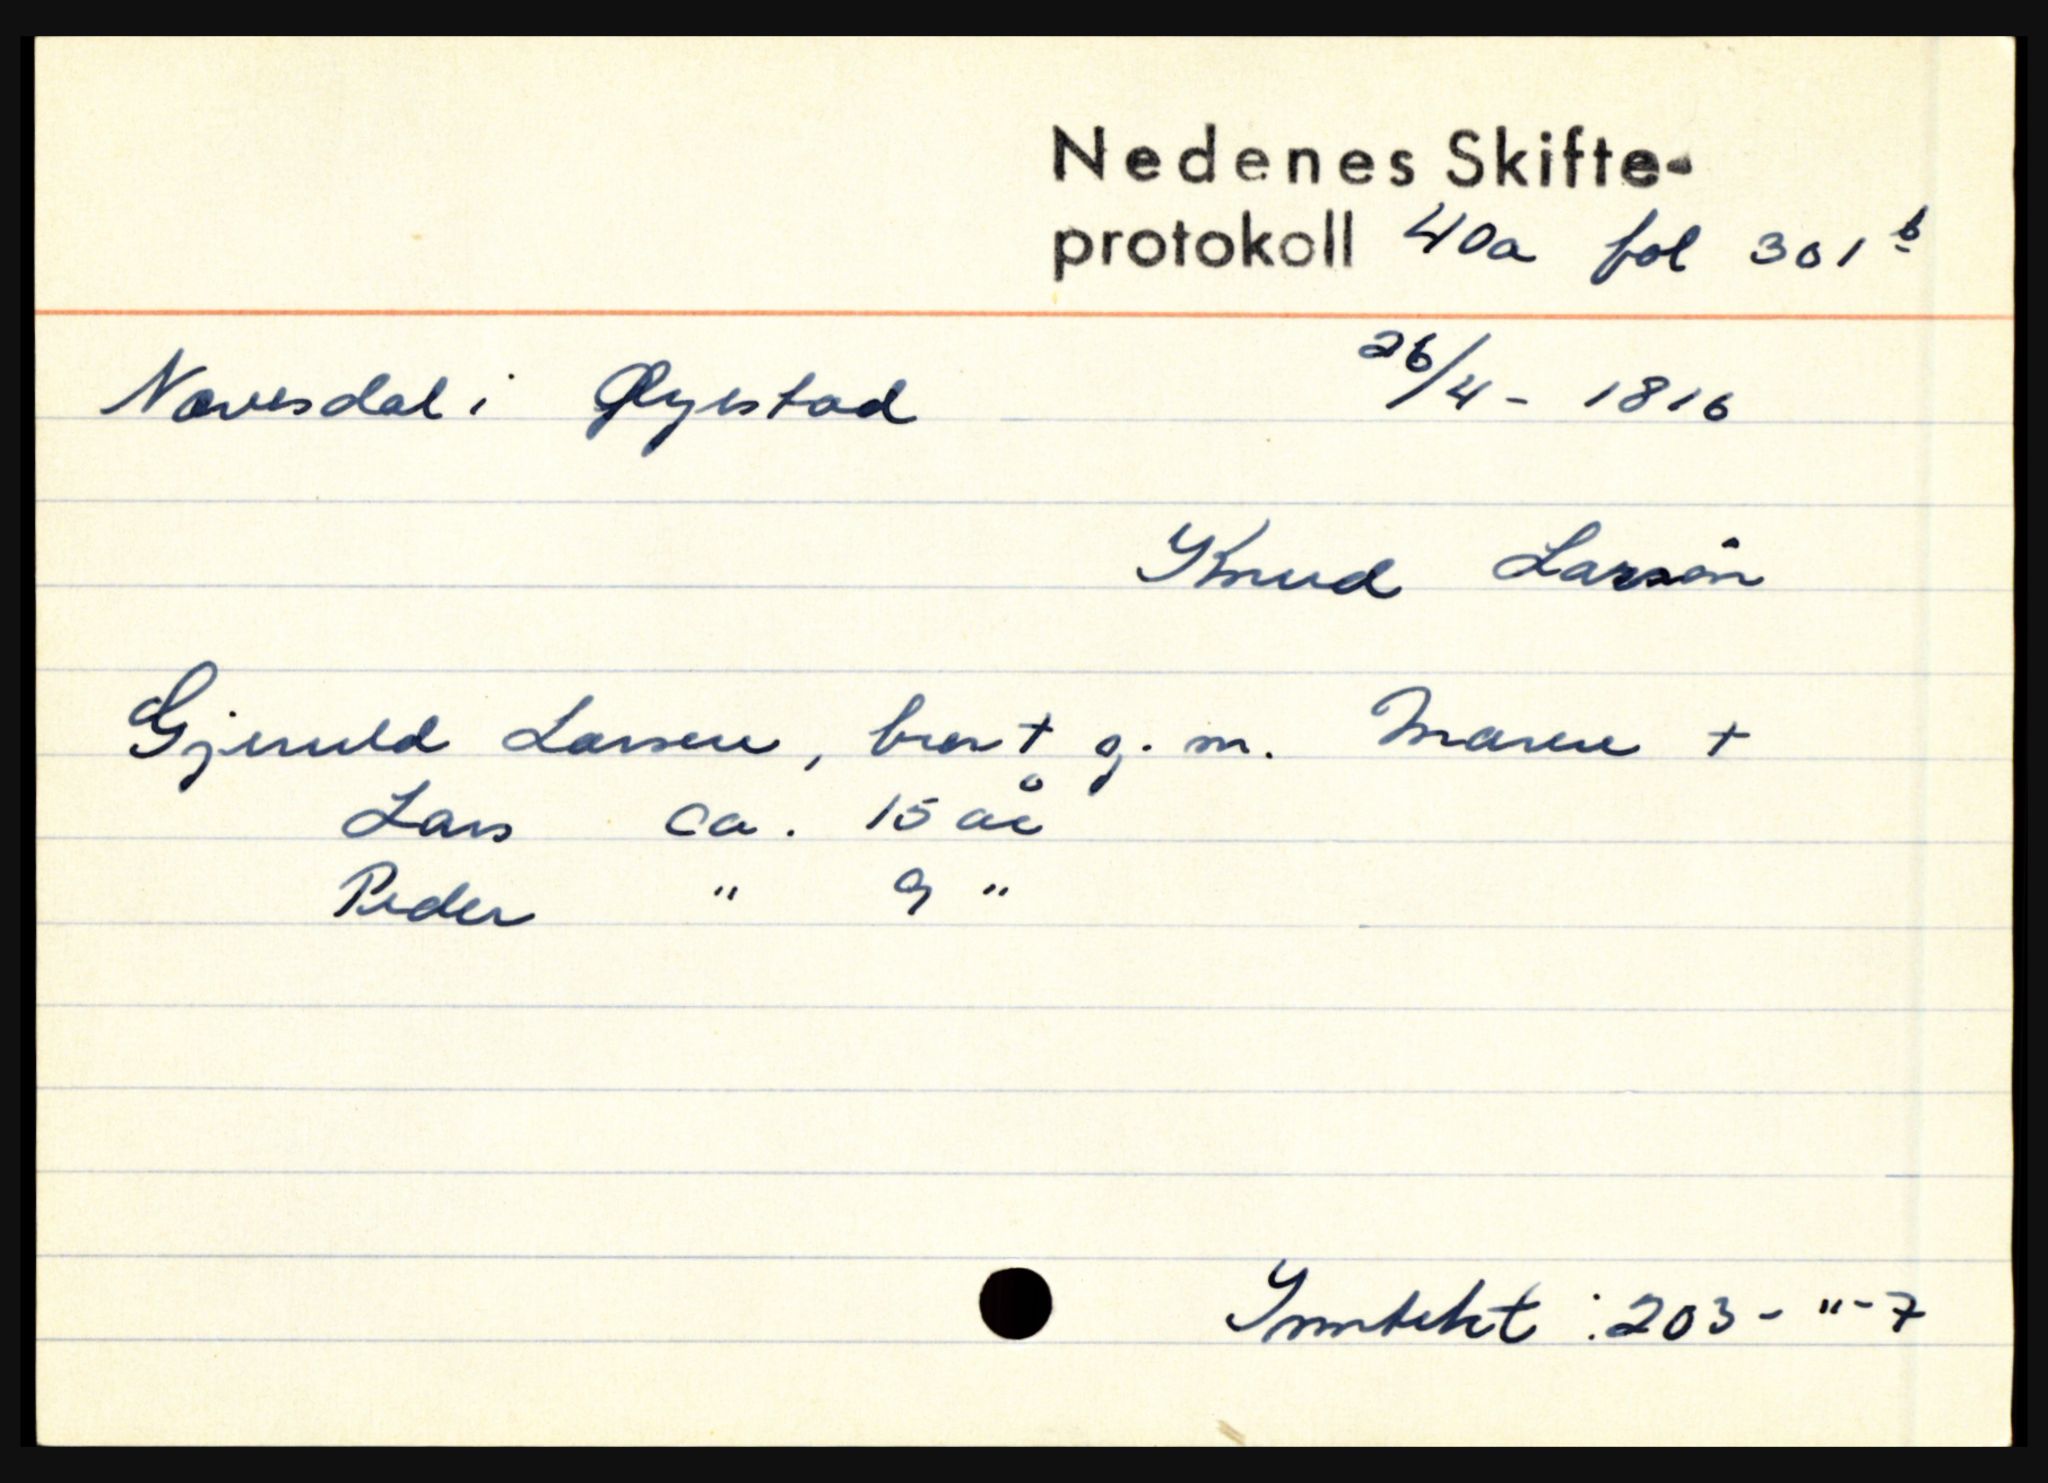 Nedenes Skifte-
protokoll 40a fol 301 b
Nævesdal i Øyestad 26/4 - 1816
Knud Larsön
Gjeruld Larsen, bror + g. m. Maren +
Lars ca. 15 år
Peder " 9 "
Inntekt : 203 - " - 7